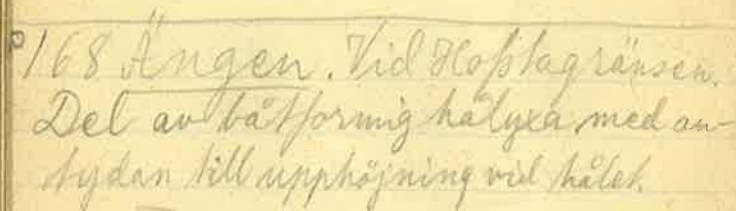 168 Ängen. Vid Hofstagränsen.
Del av båtformig hålyxa med an-
tydan till upphöjning vid hålet.